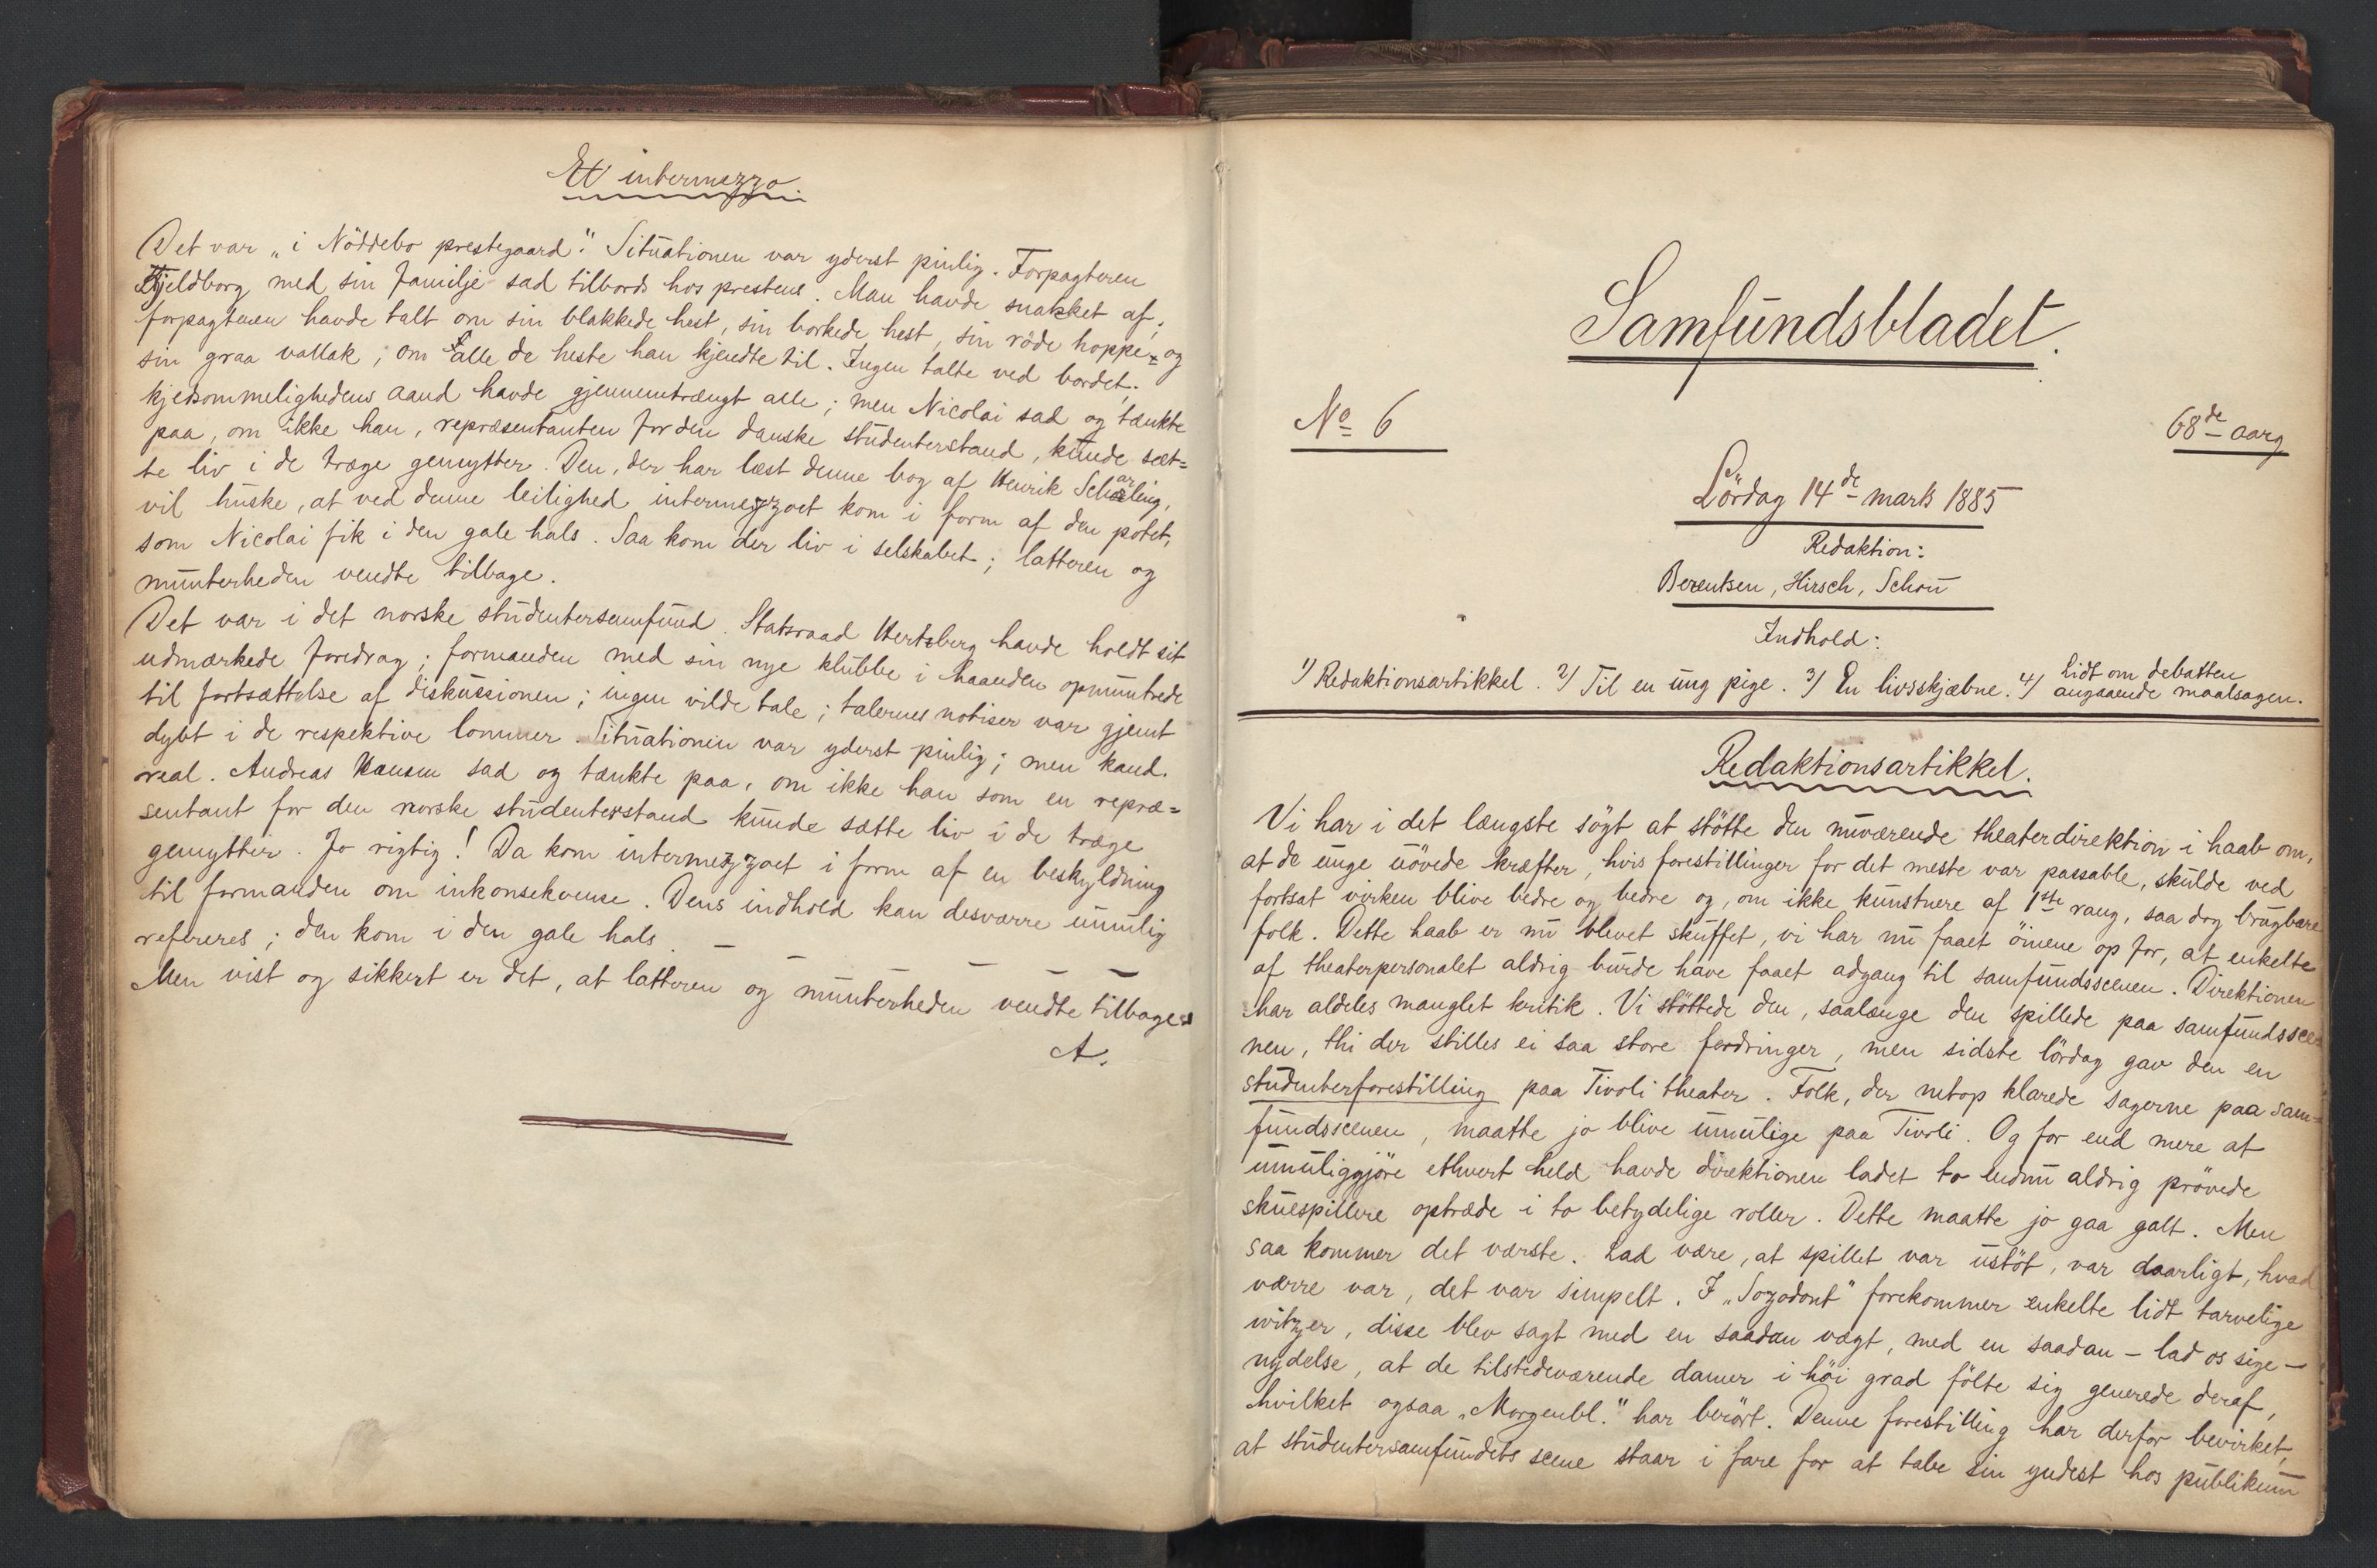 Et intermezzo
Det var „i Nöddebo prestegaard". Situationen var yderst pinlig. Forpagteren
Kjeldborg med sin familje sad tilbords hos prestens. Man havde snakket af;
forpagteren havde talt om sin blakkede hest, sin borkede hest, sin röde hoppe og
sin graa vallak, om alle de heste han kjendte til. Ingen talte ved bordet;
kjedsommelighedens aand havde gjennemtrængt alle; men Nicolai sad og tænkte
paa, om ikke han, repræsentanten for den danske studenterstand, kunde sæt=
te liv i de træge gemytter. Den, der har læst denne bog af Henrik Scharling,
vil huske, at ved denne leilighed intermezzoet kom i form af den potet,
som Nicolai fik i den gale hals. Saa kom der liv i selskabet; latteren og
munterheden vendte tilbage.
Det var i det norske studentersamfund. Statsraad Hertzberg havde holdt sit
udmærkede foredrag; formanden med sin nye klubbe i haanden opmuntrede
til fortsættelse af diskussionen; ingen vilde tale; talernes notiser var gjemt
dybt i de respektive lommer. Situationen var yderst pinlig; men kand.
real. Andreas Hansen sad og tænkte paa, om ikke han som en repræ=
sentant for den norske studenterstand kunde sætte liv i de træge
gemytter. Jo rigtig! Da kom intermezzoet i form af en beskyldning
til formanden om inkonsekvense. Dens indhold kan desværre umulig
refereres; den kom i den gale hals. — — — —
Men vist og sikkert er det, at latteren og munterheden vendte tilbage.
A.
Samfundsbladet.
No 6
68de aarg
Lördag 14de marts 1885
Redaktion:
Berentsen, Hirsch, Schou
Indhold:
1) Redaktionsartikkel. 2) Til en ung pige. 3) En livsskjæbne. 4) Lidt om debatten angaaende maalsagen.
Redaktionsartikkel.
Vi har i det længste sögt at stötte den nuværende theaterdirektion i haab om,
at de unge uövede kræfter, hvis forestillinger for det meste var passable, skulde ved
fortsat virken blive bedre og bedre og, om ikke kunstnere af 1ste rang, saa dog brugbare
folk. Dette haab er nu blevet skuffet, vi har nu faaet öinene op for, at enkelte
af theaterpersonalet aldrig burde have faaet adgang til samfundsscenen. Direktionen
har aldeles manglet kritik. Vi stöttede den, saalænge den spillede paa samfundssce=
nen, thi der stilles ei saa store fordringer, men sidste lördag gav den en
studenterforestilling paa Tivoli theater. Folk, der netop klarede sagerne paa sam=
fundsscenen, maatte jo blive umulige paa Tivoli. Og for end mere at
umuliggjöre ethvert held havde direktionen ladet to endnu aldrig prövede
skuespillere optræde i to betydelige roller. Dette maatte jo gaa galt. Men
saa kommer det værste. Lad være, at spillet var ustöt, var daarligt, hvad
værre var, det var simpelt. I „Sozodont" forekommer enkelte lidt tarvelige
witzer, disse blev sagt med en saadan vægt, med en saadan – lad os sige –
nydelse, at de tilstedeværende damer i höi grad fölte sig generede deraf,
hvilket ogsaa „Morgenbl." har berört. Denne forestilling har derfor bevirket,
at studentersamfundets scene staar i fare for at tabe sin yndest hos publikum